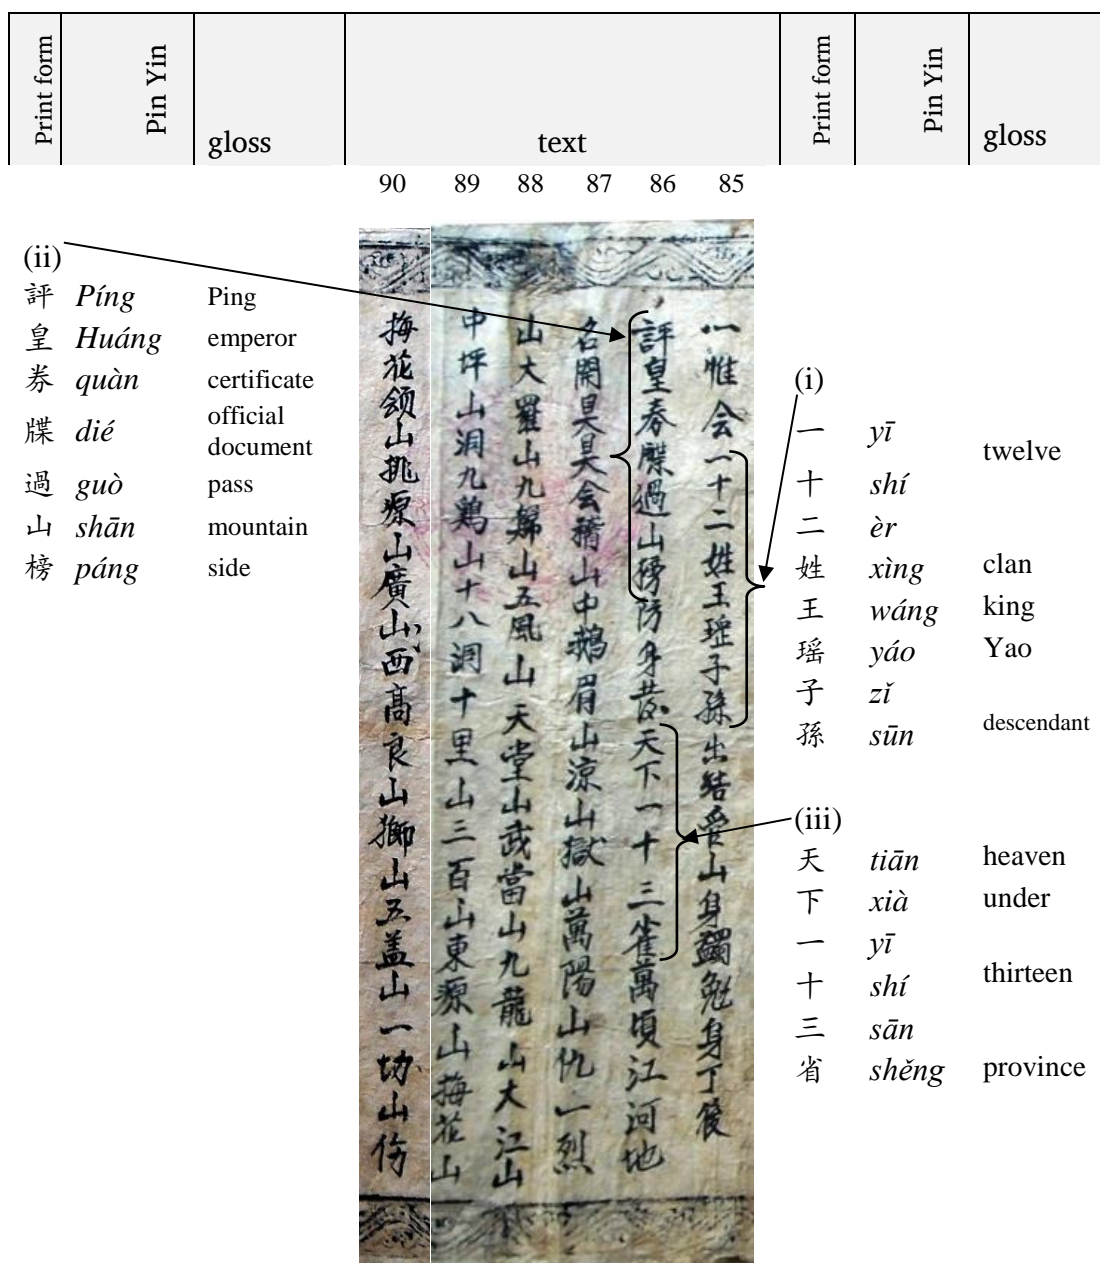 Print form Pin Yin gloss text Print form Pin Yin gloss
90 89 88 87 86 85
(ii)
評 Píng Ping
皇 Huáng emperor
券 quàn certificate
牒 dié official document
過 guò pass
山 shān mountain
榜 páng side
一惟会一十二姓王瑶子孫出結山身蠲免身丁後
評皇券牒過山榜防身天下一十三雀萬頃江河地
名開昊昊会稽山中鵝眉山涼山獄山萬陽山仇一烈
山大羅山九歸山五風山天堂山武當山九龍山大江山
中坪山洞九鷄山十八洞十里山三百山東源山梅花山
梅花领山桃源山廣山西高良山獅山五盖山一切山伤
(i)
一 yī twelve
十 shí
二 èr
姓 xìng clan
王 wáng king
瑶 yáo Yao
子 zǐ descendant
孫 sūn
(iii)
天 tiān heaven
下 xià under
一 yī thirteen
十 shí
三 sān
省 shěng province